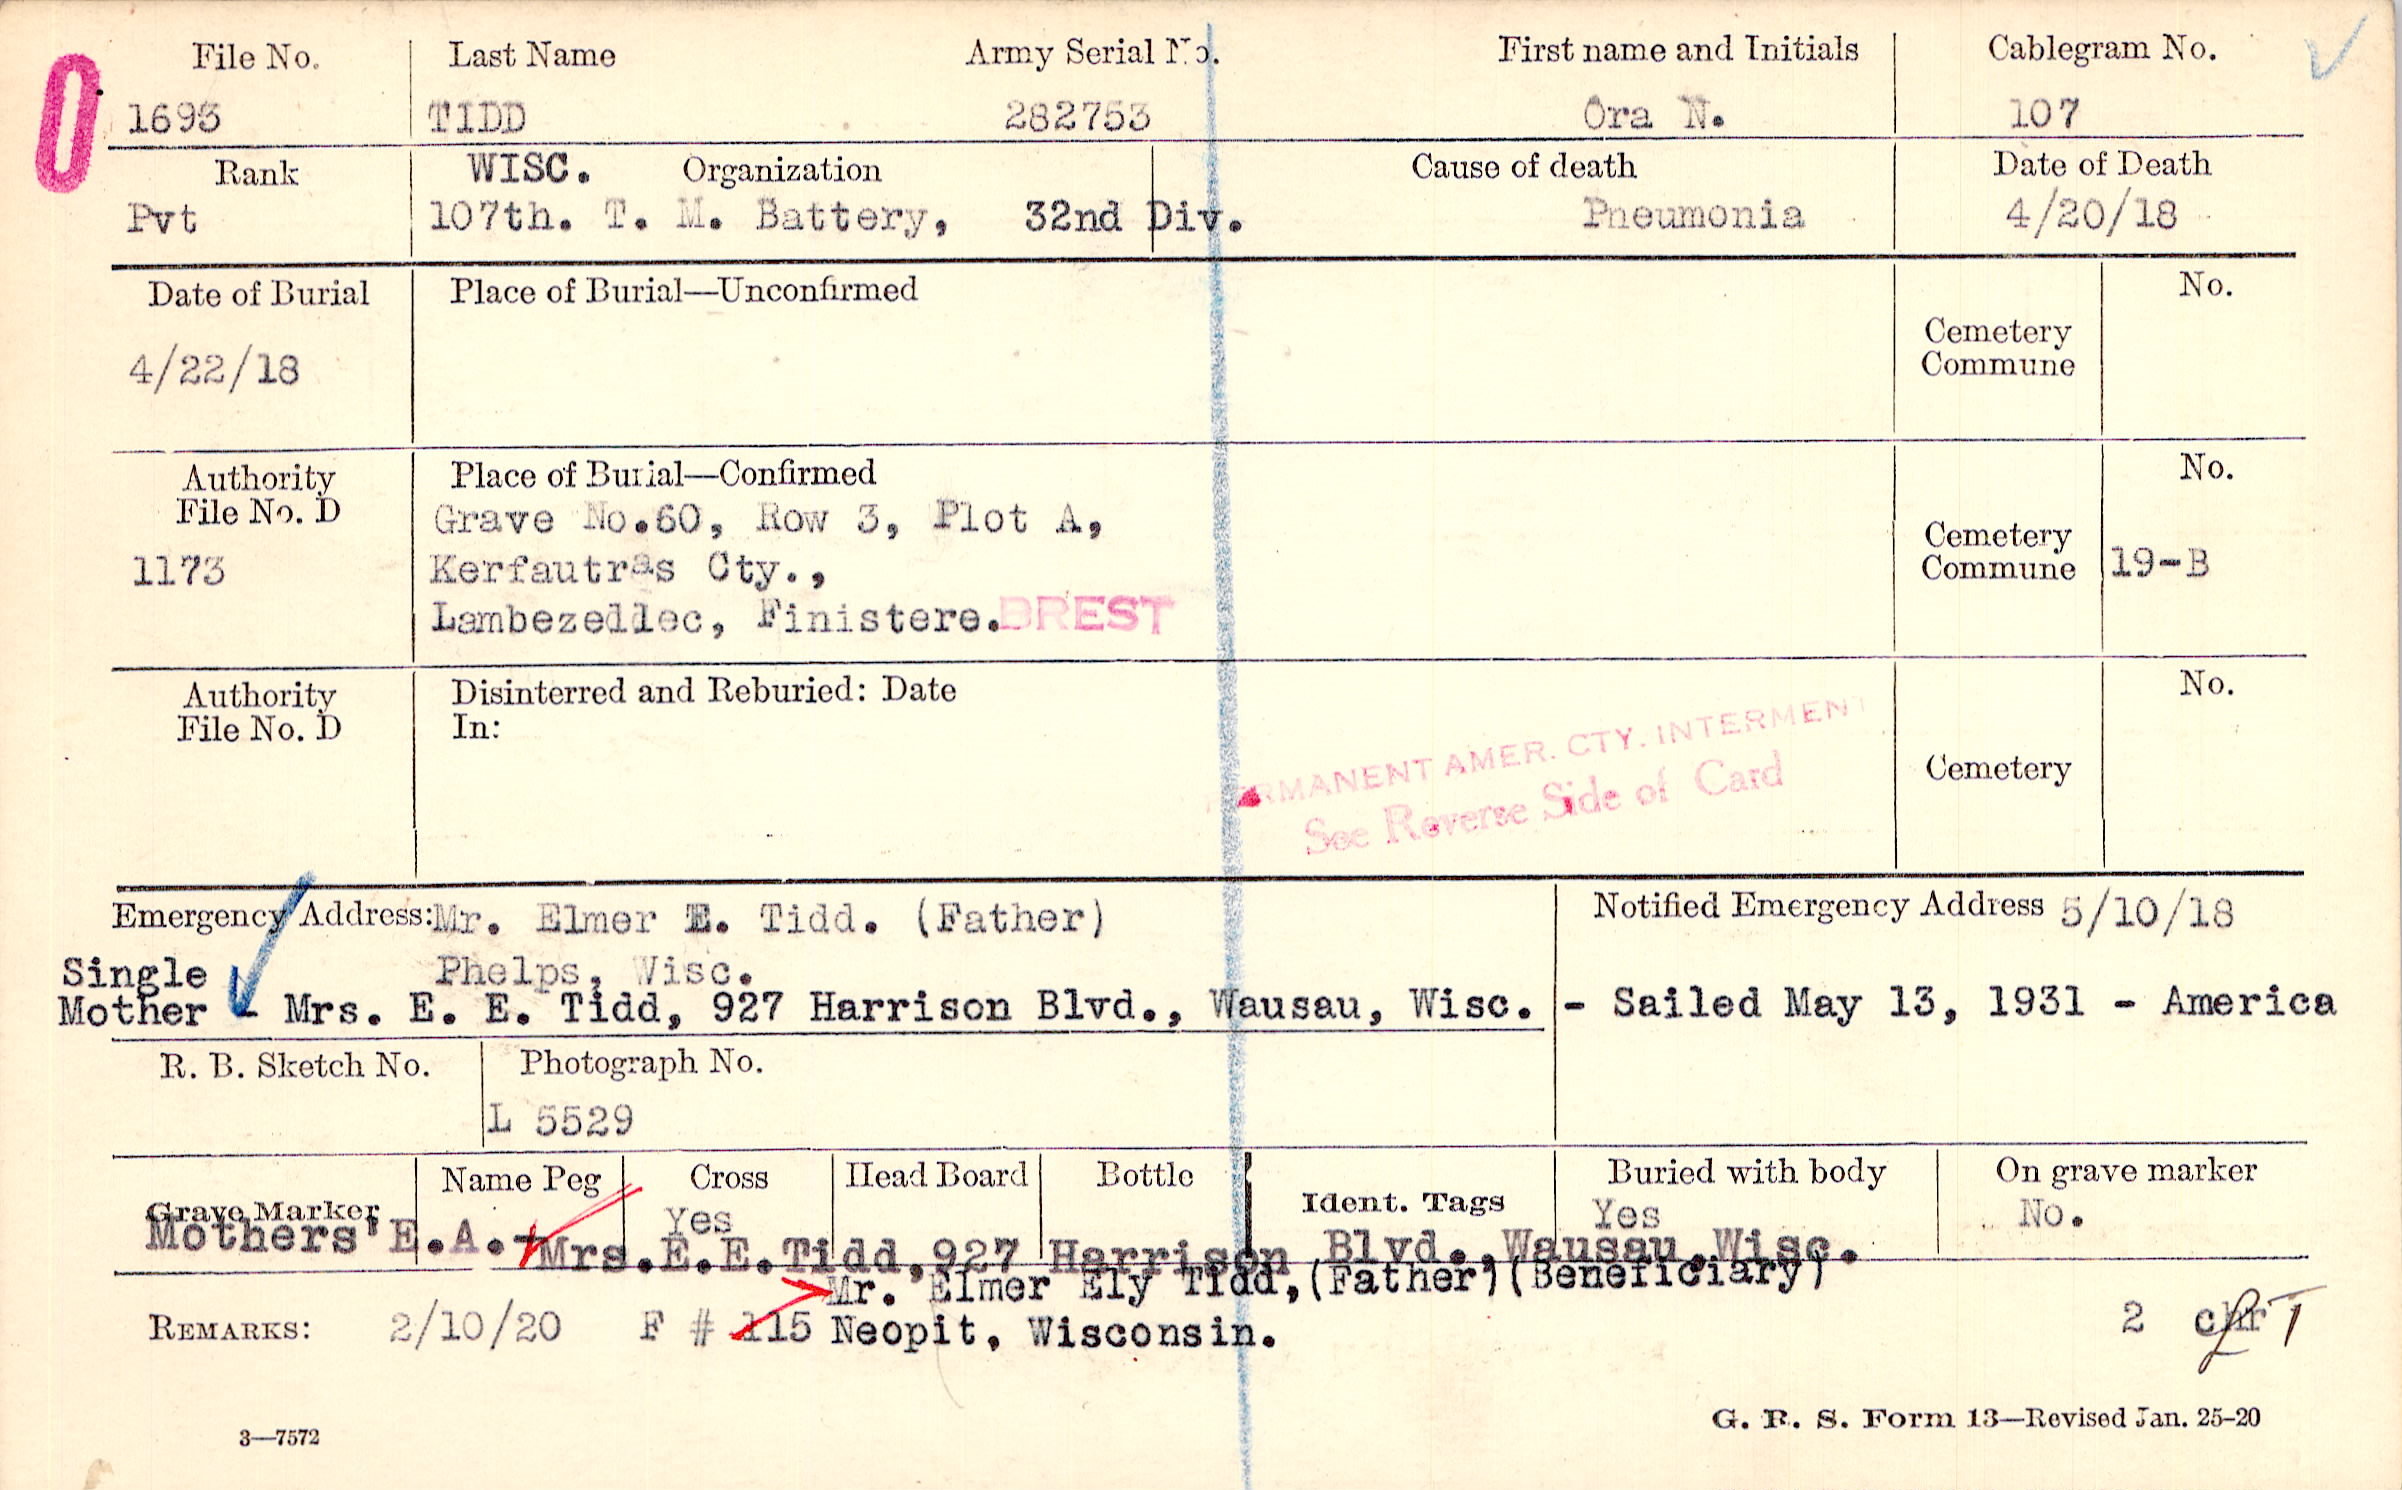 File No. Last Name Army Serial No. First name and Initials Cablegram No.
1693 TIDD 282753 Ora N. 107
Rank WISC. Organization Cause of death Date of Death
Pvt 107th. T. M. Battery, 32nd Div. Pneumonia 4/20/18
Date of Burial Place of Burial—Unconfirmed No.
4/22/18
Cemetery
Commune
Authority Place of Burial—Confirmed No.
File No. D
1173
Grave No.60, Row 3, Plot A,
Kerfautras Cty.,
Lambezellec, Finistere. BREST
Cemetery
Commune 19-B
Authority Disinterred and Reburied: Date No.
File No. D In:
PERMANENT AMER. CTY. INTERMENT
See Reverse Side of Card
Cemetery
Emergency Address: Mr. Elmer E. Tidd. (Father) Notified Emergency Address 5/10/18
Single Phelps, Wisc.
Mother - Mrs. E. E. Tidd, 927 Harrison Blvd., Wausau, Wisc. - Sailed May 13, 1931 - America
R. B. Sketch No. Photograph No.
L 5529
Grave Marker Name Peg Cross Head Board Bottle Ident. Tags Buried with body On grave marker
Yes Yes No.
Mothers' E.A. Mrs.E.E.Tidd,927 Harrison Blvd.,Wausau,Wisc.
Mr. Elmer Ely Tidd,(Father)(Beneficiary)
REMARKS: 2/10/20 F # 115 Neopit, Wisconsin. 2 chr
3—7572 G. R. S. Form 13—Revised Jan. 25-20